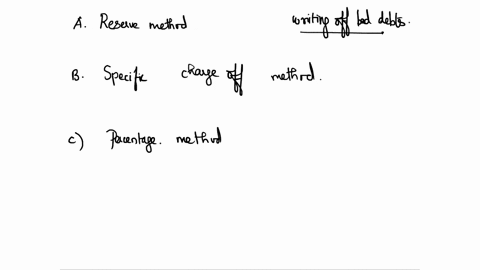 A. Reserve method
writing off bad debts.
B. Specific charge off method.
c) Percentage. method